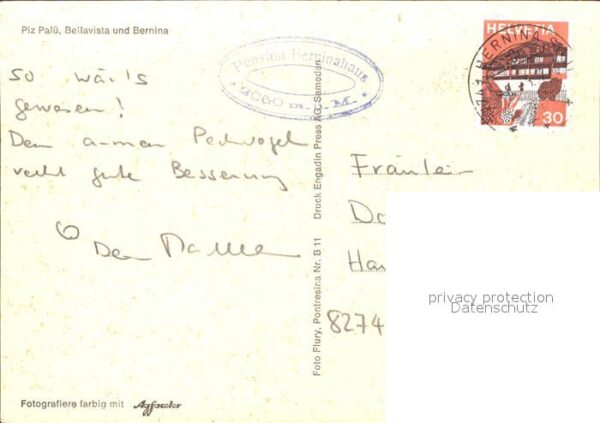 Piz Palü, Bellavista und Bernina
so wär's
gewesen!
Dem armen Pechvogel
recht gute Besserung
Pension Berninahaus
2050 m.ü.M.
HELVETIA
30
BERNINA
Foto Flury, Pontresina Nr. B 11 Druck Engadin Press AG, Samedan
Fräulein
Do
Ha
8274
privacy protection
Datenschutz
Fotografiere farbig mit Agfacolor